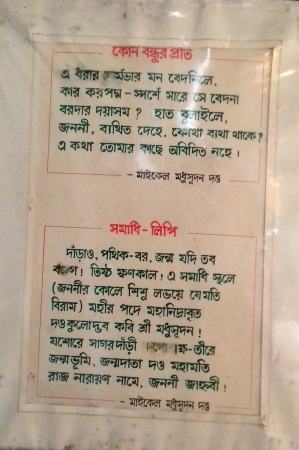 কোন বন্ধুর প্রতি
এ ধরার মন বেদনিলে,
কার করপদ্ম - স্পর্শে সারে সে বেদনা
বরদার দয়াসম ? হাত বুলাইলে,
জননী, ব্যথিত দেহে, কোথা ব্যথা থাকে ?
এ কথা তোমার কাছে অবিদিত নহে ।
- মাইকেল মধুসূদন দত্ত
সমাধি - লিপি
দাঁড়াও, পথিক-বর, জন্ম যদি তব
বঙ্গে ! তিষ্ঠ ক্ষণকাল ! এ সমাধি স্থলে
(জননীর কোলে শিশু লভয়ে যেমতি
বিরাম) মহীর পদে মহানিদ্রাবৃত
দত্তকুলোদ্ভব কবি শ্রী মধুসূদন !
যশোরে সাগরদাঁড়ী -তীরে
জন্মভূমি, জন্মদাতা দত্ত মহামতি
রাজ নারায়ণ নামে, জননী জাহ্নবী !
- মাইকেল মধুসূদন দত্ত